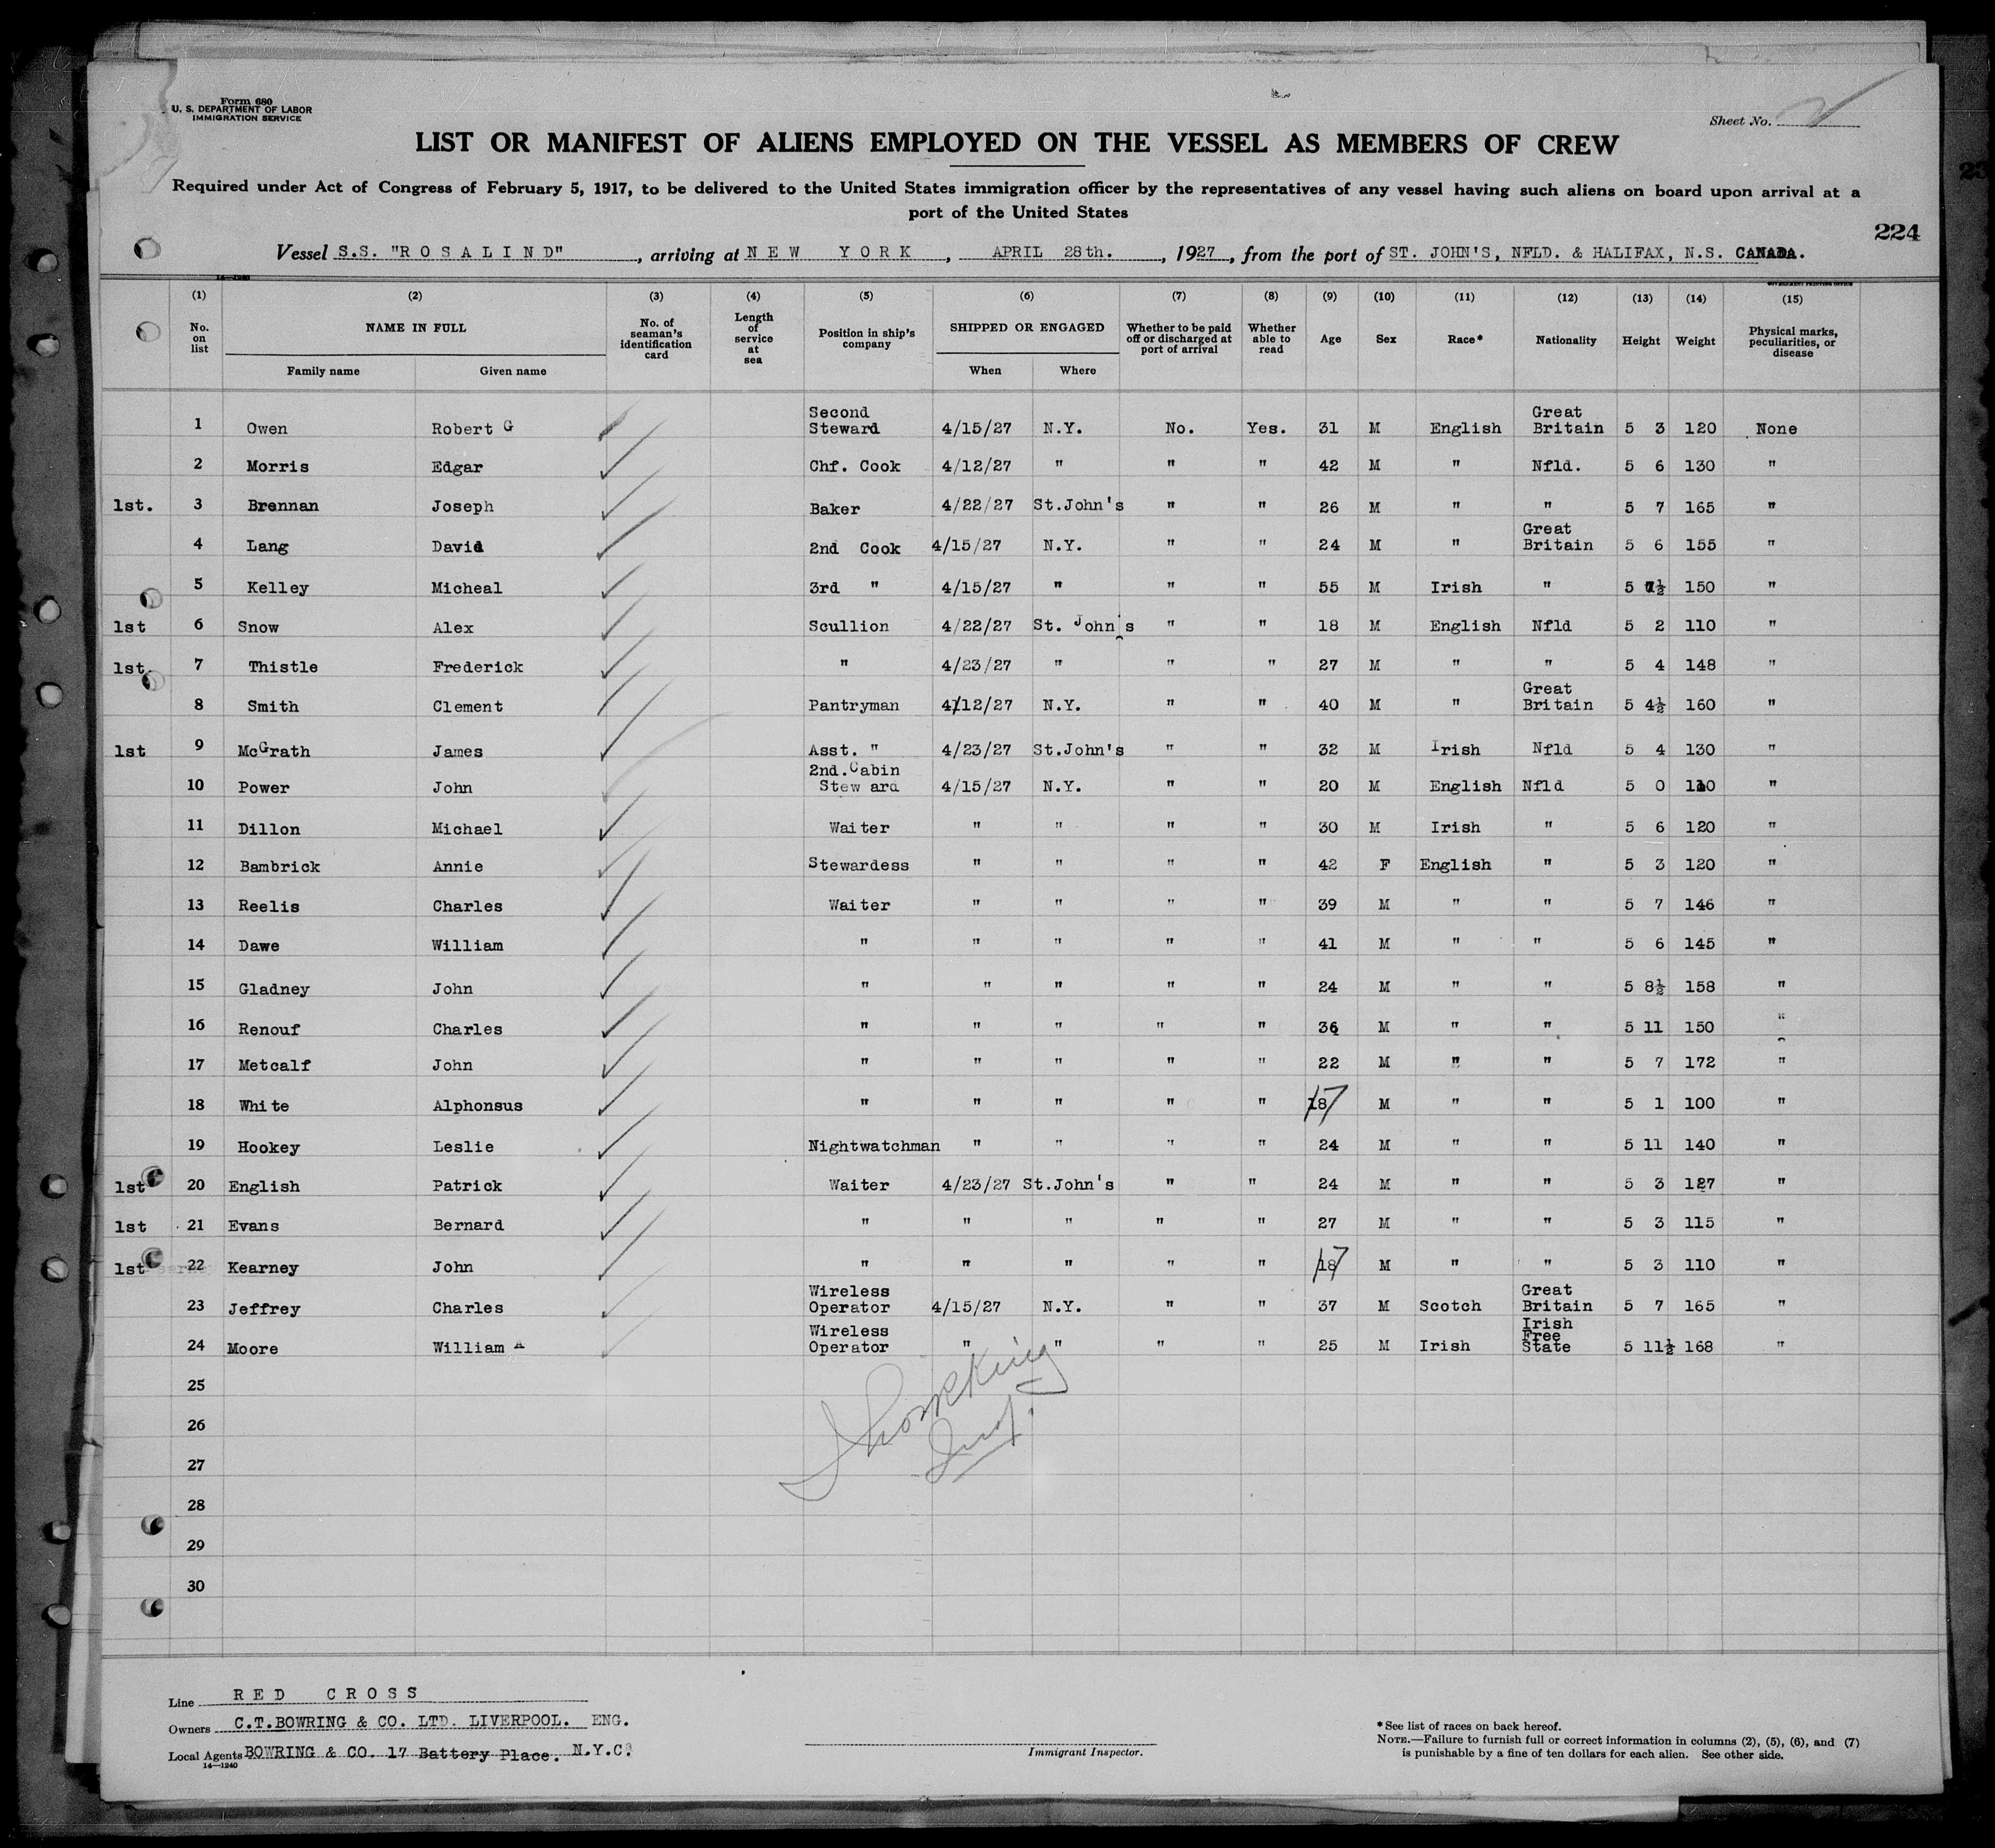 Form 680
U. S. DEPARTMENT OF LABOR
IMMIGRATION SERVICE
Sheet No. 2
LIST OR MANIFEST OF ALIENS EMPLOYED ON THE VESSEL AS MEMBERS OF CREW
Required under Act of Congress of February 5, 1917, to be delivered to the United States immigration officer by the representatives of any vessel having such aliens on board upon arrival at a
port of the United States
224
Vessel S.S. "ROSALIND", arriving at NEW YORK, APRIL 28th., 1927, from the port of ST. JOHN'S, NFLD. & HALIFAX, N.S. CANADA.
14—1240 GOVERNMENT PRINTING OFFICE
(1) No. on list (2) NAME IN FULL Family name Given name (3) No. of seaman's identification card (4) Length of service at sea (5) Position in ship's company (6) SHIPPED OR ENGAGED When Where (7) Whether to be paid off or discharged at port of arrival (8) Whether able to read (9) Age (10) Sex (11) Race* (12) Nationality (13) Height (14) Weight (15) Physical marks, peculiarities, or disease
1 Owen Robert G Second Steward 4/15/27 N.Y. No. Yes. 31 M English Great Britain 5 3 120 None
2 Morris Edgar Chf. Cook 4/12/27 " " " 42 M " Nfld. 5 6 130 "
1st. 3 Brennan Joseph Baker 4/22/27 St.John's " " 26 M " " 5 7 165 "
4 Lang David 2nd Cook 4/15/27 N.Y. " " 24 M " Great Britain 5 6 155 "
5 Kelley Micheal 3rd " 4/15/27 " " " 55 M Irish " 5 7½ 150 "
1st 6 Snow Alex Scullion 4/22/27 St. John's " " 18 M English Nfld 5 2 110 "
1st. 7 Thistle Frederick " 4/23/27 " " " 27 M " " 5 4 148 "
8 Smith Clement Pantryman 4/12/27 N.Y. " " 40 M " Great Britain 5 4½ 160 "
1st 9 McGrath James Asst. " 4/23/27 St.John's " " 32 M Irish Nfld 5 4 130 "
10 Power John 2nd.Cabin Steward 4/15/27 N.Y. " " 20 M English Nfld 5 0 110 "
11 Dillon Michael Waiter " " " " 30 M Irish " 5 6 120 "
12 Bambrick Annie Stewardess " " " " 42 F English " 5 3 120 "
13 Reelis Charles Waiter " " " " 39 M " " 5 7 146 "
14 Dawe William " " " " " 41 M " " 5 6 145 "
15 Gladney John " " " " " 24 M " " 5 8½ 158 "
16 Renouf Charles " " " " " 36 M " " 5 11 150 "
17 Metcalf John " " " " " 22 M " " 5 7 172 "
18 White Alphonsus " " " " " 18 17 M " " 5 1 100 "
19 Hookey Leslie Nightwatchman " " " " 24 M " " 5 11 140 "
1st 20 English Patrick Waiter 4/23/27 St.John's " " 24 M " " 5 3 127 "
1st 21 Evans Bernard " " " " " 27 M " " 5 3 115 "
1st 22 Kearney John " " " " " 18 17 M " " 5 3 110 "
23 Jeffrey Charles Wireless Operator 4/15/27 N.Y. " " 37 M Scotch Great Britain 5 7 165 "
24 Moore William A Wireless Operator " " " " 25 M Irish Irish Free State 5 11½ 168 "
25
26
27
28
29
30
Line RED CROSS
Owners C.T.BOWRING & CO. LTD. LIVERPOOL. ENG.
Local Agents BOWRING & CO. 17 Battery Place. N.Y.C.
14—1240
Immigrant Inspector.
*See list of races on back hereof.
NOTE.—Failure to furnish full or correct information in columns (2), (5), (6), and (7)
is punishable by a fine of ten dollars for each alien. See other side.